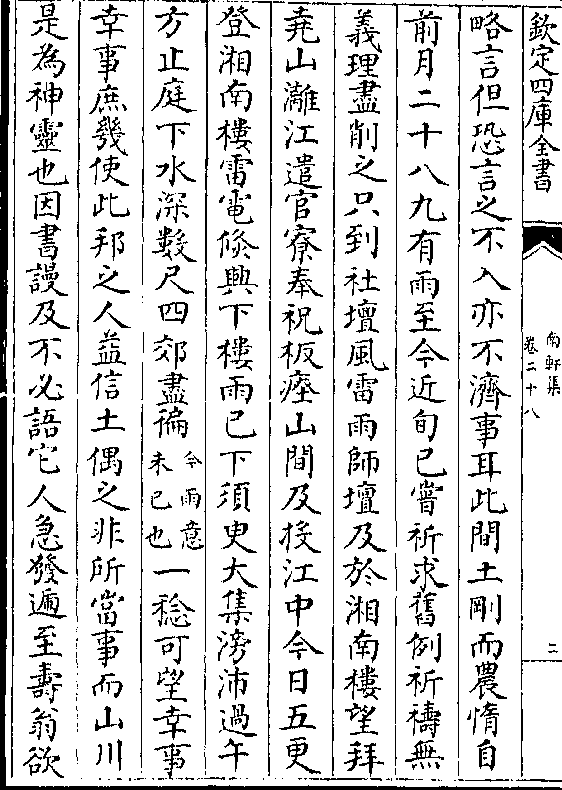 欽定四庫全書
南軒集
卷二十八
二
略言但恐言之不入亦不濟事耳此間土剛而農惰自
前月二十八九有雨至今近旬已嘗祈求舊例祈禱無
義理盡削之只到社壇風雷雨師壇及於湘南樓望拜
堯山灕江遣官寮奉祝板瘞山間及投江中今日五更
登湘南樓雷電倐興下樓雨已下須臾大集滂沛過午
方止庭下水深數尺四郊盡徧今雨意未已也一稔可望幸事
幸事庶幾使此邦之人益信土偶之非所當事而山川
是為神靈也因書謾及不必語它人急發遞至壽翁欲